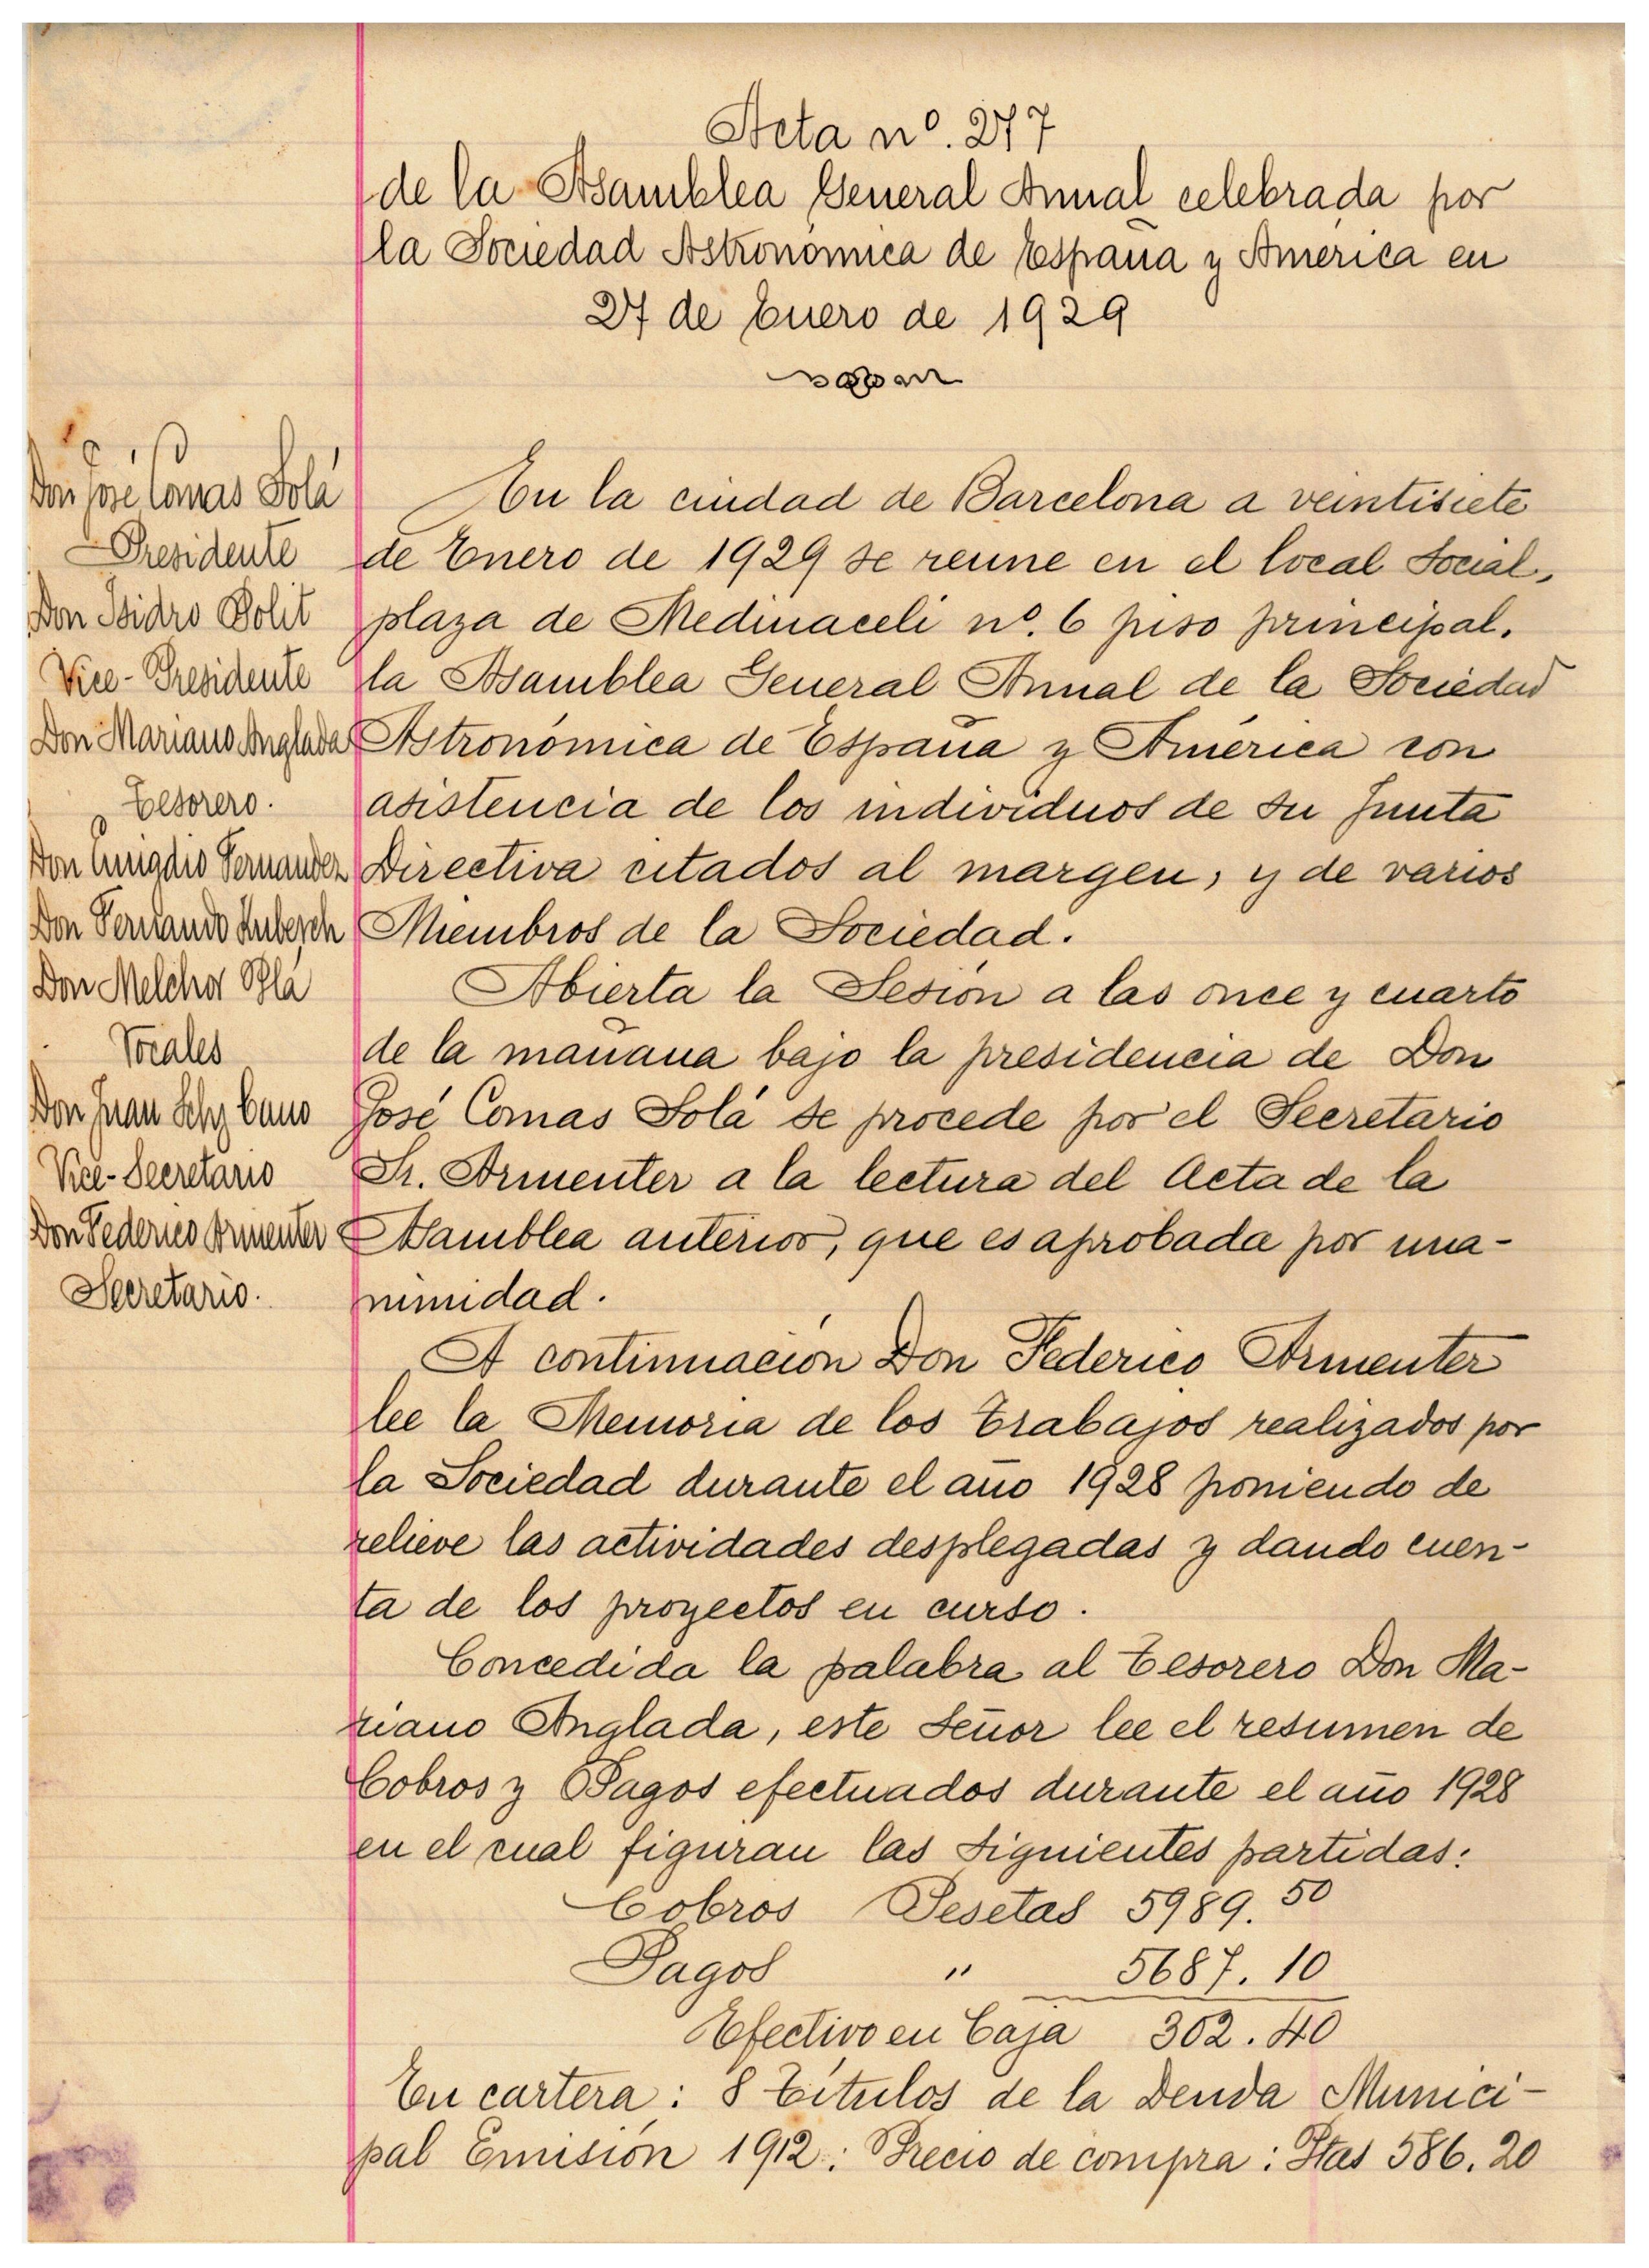 Acta nº. 277
de la Asamblea General Anual celebrada por
la Sociedad Astronómica de España y América en
27 de Enero de 1929
Don José Comas Solá
Presidente
Don Isidro Polit
Vice-Presidente
Don Mariano Anglada
Tesorero.
Don Emigdio Fernandez
Don Fernando
Don Melchor Plá
Vocales
Don Juan Cano
Vice-Secretario
Don Federico Armenter
Secretario.
En la ciudad de Barcelona a veintisiete
de Enero de 1929 se reune en el local social,
plaza de Medinaceli nº. 6 piso principal,
la Asamblea General Anual de la Sociedad
Astronómica de España y América con
asistencia de los individuos de su Junta
Directiva citados al margen, y de varios
Miembros de la Sociedad.
Abierta la Sesión a las once y cuarto
de la mañana bajo la presidencia de Don
José Comas Solá se procede por el Secretario
Sr. Armenter a la lectura del Acta de la
Asamblea anterior, que es aprobada por una-
nimidad.
A continuación Don Federico Armenter
lee la Memoria de los trabajos realizados por
la Sociedad durante el año 1928 poniendo de
relieve las actividades desplegadas y dando cuen-
ta de los proyectos en curso.
Concedida la palabra al Tesorero Don Ma-
riano Anglada, este señor lee el resumen de
Cobros y Pagos efectuados durante el año 1928
en el cual figuran las siguientes partidas:
Cobros Pesetas 5989.50
Pagos " 5687.10
Efectivo en Caja 302.40
En cartera: 8 Títulos de la Deuda Munici-
pal Emisión 1912: Precio de compra: Ptas 586.20